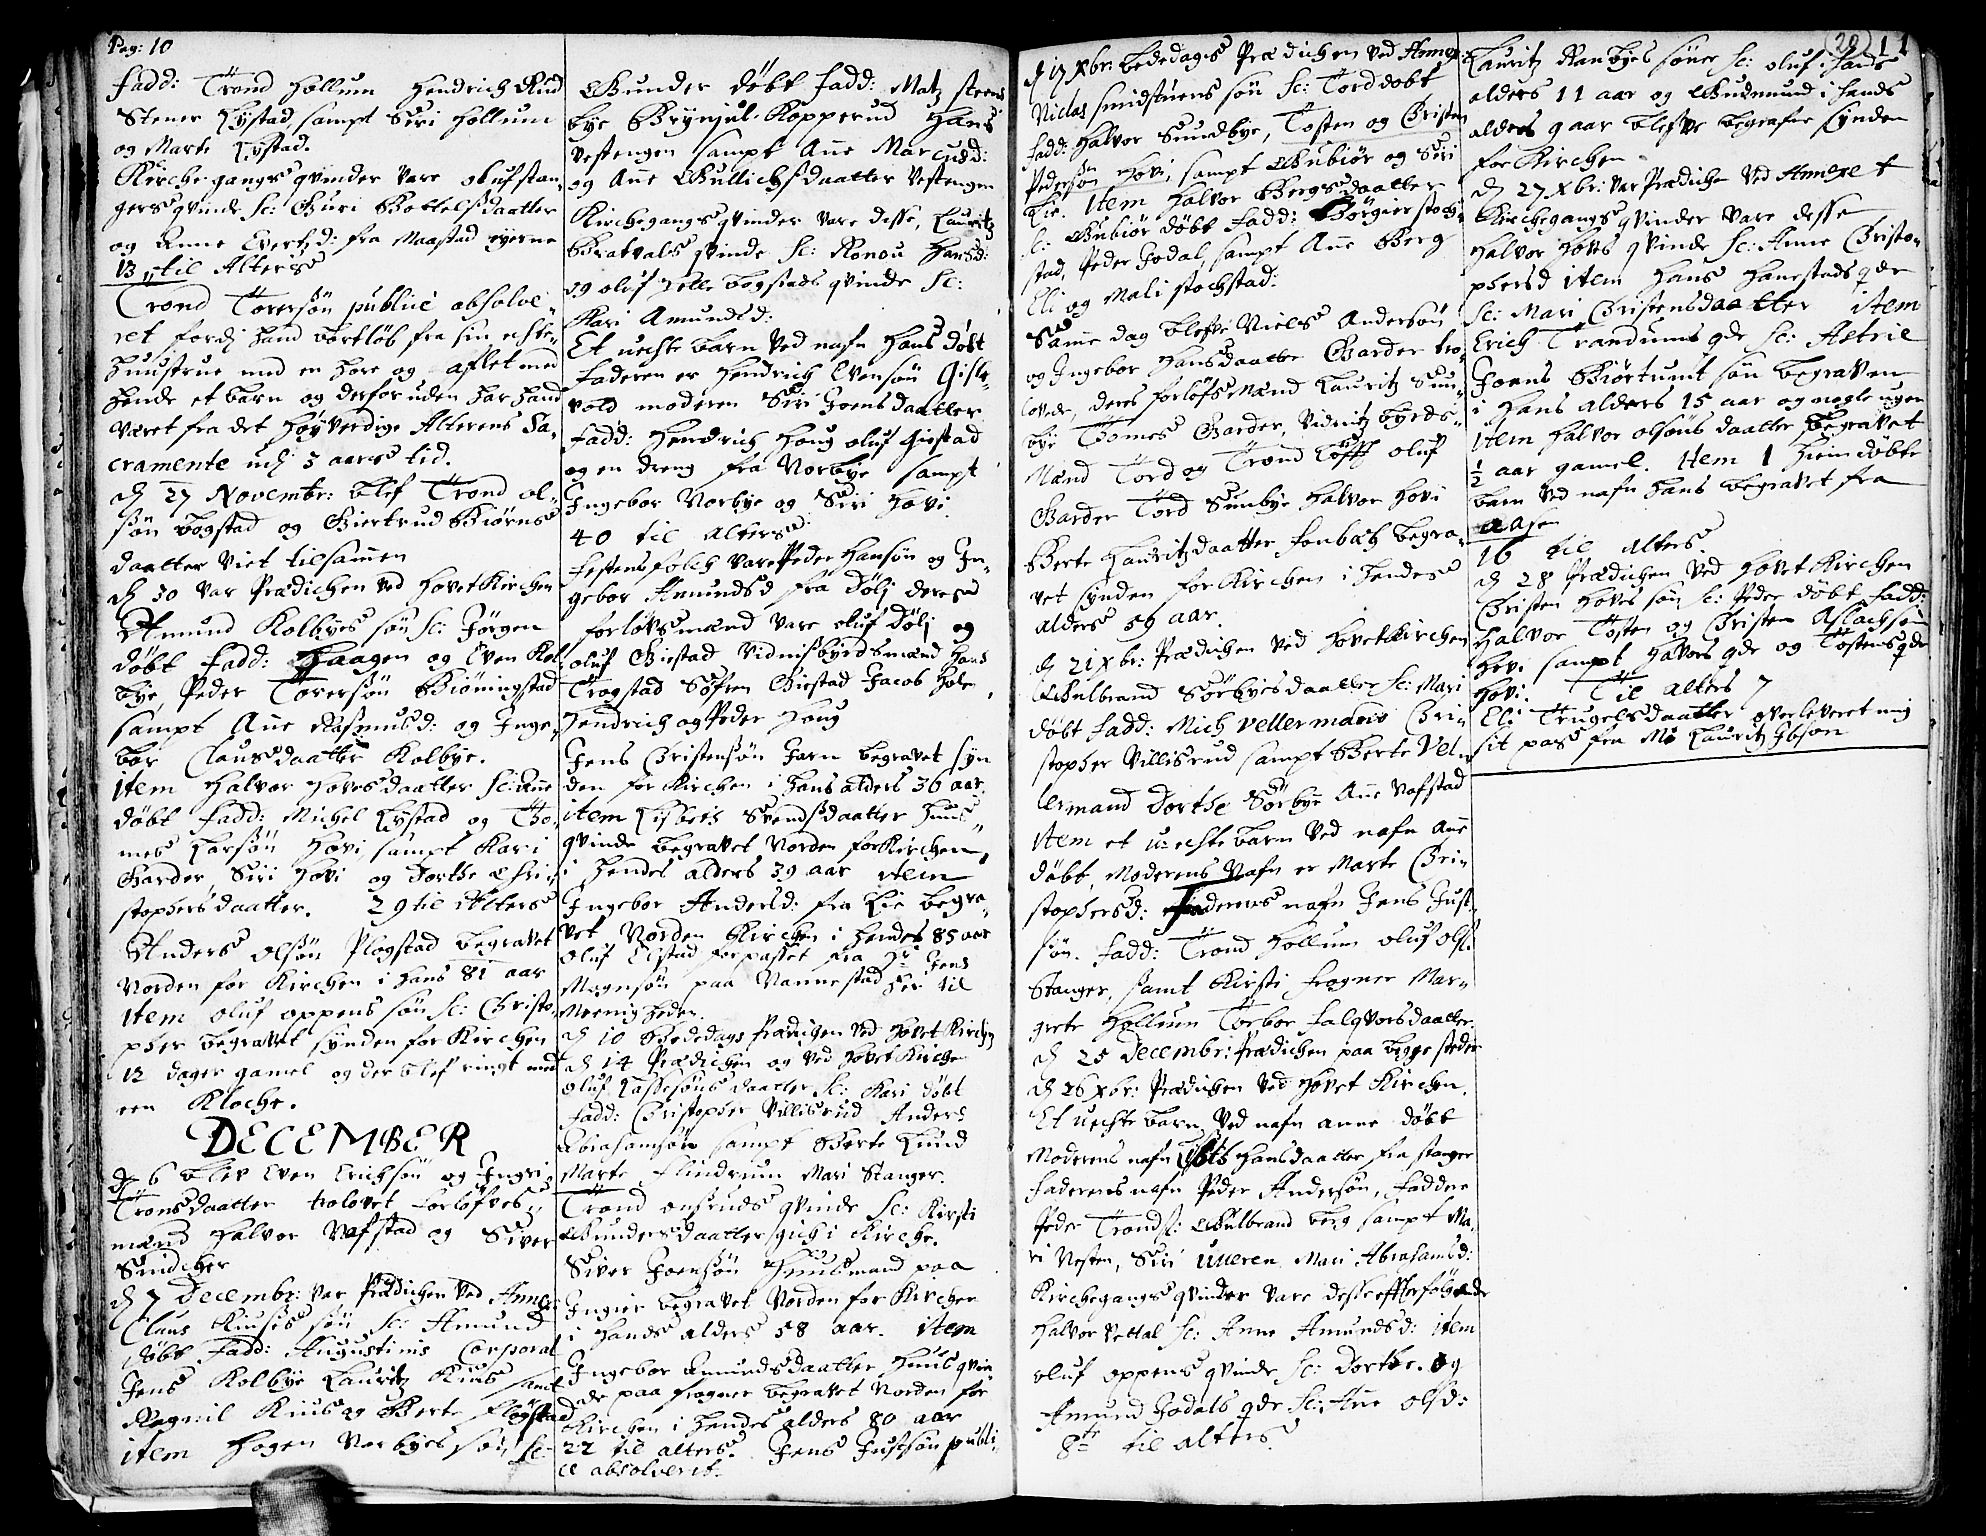 Pag: 10
Fadd: Trond Hollum Hendrich Rud
Stener Lystad, sampt Siri Hollum
og Marte Lystad.
Kirchegangs qvinder vare olufstan-
gers qvinde Sc: Guri Bottelsdaatter
og Anne Evertsd: fra Maastad
13 til Alters
Trond Torersøn publicè absolve-
ret fordj hand bortløb fra sin echte
Huustrue med en hore og aflet med
hende et barn og desforuden har hand
været fra det høyverdige Alterens Sa-
cramente udj 5 aars tid.
d 27 Novembr: blef Trond ol-
søn bogstad og Giertrud Biørns
daatter viet tilsamen
d 30 var Prædichen ved HovetKirchen
Amund Kolbyes søn Sc: Jörgen
döbt Fadd: Haagen og Even Kol-
bye, Peder Torersøn Biöningstad
sampt Ane Rasmusd: og Inge-
bor Clausdaatter Kolbye.
item Halvor Hovesdaatter Sc: Ane
döbt Fadd: Michel Lystad og Tho-
mes Larsøn Hovi, sampt Kari
Garder Siri Hovi og Dorthe Chri-
stophersdaatter. 29 til Alters
Anders olsøn Plogstad begravet
Norden for Kirchen i hans 81 aar
Item oluf oppens søn Sc: Christo-
pher begravet synden for Kirchen
12 dager gamel og der blef ringt med
een Kloche.
DECEMBER
d 6 blev Even Erichsøn og Ingri
Tronsdaatter trolovet forlöfves-
mænd Halvor Nafstad og Siver
Smidcher
d 7 Decembr: var Prædichen ved Annex
Claus Kiuses søn Sc: Amund
döbt Fadd: Augustinus Corporal
Jens Kolbye Lauritz Kius samt
Ragnil Kius og Berte Flogstad
item Hogen Norbyes søn Sc:
Gunder döbt Fadd: Matz steens
bye Brynjul Kopperud Hans
Vestengen sampt Ane Marcusd:
og Ane Gullichsdaatter Vestengen
Kirchegangs qvinder vare desse, Lauritz
Bratvals qvinde Sc: Ronou Hansd:
og oluf Felle bogstads qvinde Sc:
Kari Amundsd:
Et uechte barn ved nafn Hans döbt
Faderen er Hendrich Evensøn Gisle-
vold moderen Siri Joensdaatter
Fadd: Hendrich Houg oluf Giestad
og en dreng fra Norbye sampt
Ingebor Norbye og Siri Hovi
40 til alters
Festensfolch vare Peder Hansøn og In-
gebor Amundsd fra Dölj deres
forlövsmænd vare oluf Dölj og
oluf Giestad vidnisbyrdsmænd Hans
Trogstad Söfren Giestad Jacob Hole
Hendrich og Peder Houg
Jens Christensøn Farn begravet syn
den for Kirchen i hans alders 36 aar
item Lisbeth Svendsdaatter Huus-
qvinde begravet Norden for Kirchen,
i hendes alders 39 aar item
Ingebor Andersd: fra Lie begra-
vet Norden Kirchen i hendes 85 aar
oluf Elstad forpasset fra Hr Jens
Mognsøn paa Nannestad her til
Menigheden.
d 10 Bededags Prædichen ved Hovet Kirchen
d 14 Prædichen og ved Hovet Kirchen
oluf Lassesøns daatter Sc: Kari döbt
Fadd: Christopher Villisrud Anders
Abrahamsøn sampt Berte Lund
Marte Flindrum Mari Stanger.
Trond onsruds qvinde Sc: Kirsti
Gundersdaatter gich i Kirche.
Siver Joensøn Huusmand paa
Ingier begravet Norden for Kirchen
i hands alders 58 aar. item
Ingebor Amundsdaatter Huusqvin-
de paa frogner begravet Norden for
Kirchen i hendes alders 80 aar
22 til alters. Jens Justsøn publi-
cè absolverit.
d 17 Xbr: bededags Prædichen ved Annex
Niclas smidstuens søn Sc: Tord döbt
Fadd: Halvor Sundbye, Tosten og Christen
Pedersøn Hovi, sampt Gubiör og Siri
Lie. Item Halvor Bergs daatter
Sc: Gubiör döbt Fadd: Börgier stoch-
stad, Peder Jodal, sampt Ane Berg
Eli og Mali stochstad:
Same dag blefve Niels Andersøn
og Ingebor Hansdaatter Garder tro-
lovede, deres forlofs Mænd Lauritz Sun-
bye Thomes Garder, Vidnitzbyrds-
Mænd Tord og Trond Toffs oluf
Garder Tord Sunbye Halvor Hovi
Berte Lauritzdaatter Fonbech begra-
vet synden for Kirchen i hendes
alders 59 aar.
d 21 Xbr: Prædichen ved Hovetkirchen
Gulbrand Sörbyes daatter Sc: Mari
döbt Fadd: Mich Vellermands Chri-
stopher Villisrud sampt Berte Vel-
lermand Dorthe Sörbye Ane Nafstad
Item et u-echte barn ved nafn Ane
döbt, Moderens Nafn er Marte Chri-
stophersd: Faderens nafn Jens Just-
søn. Fadd: Trond Hollum oluf ols:
Stanger, samt Kirsti Frogner Mar-
grete Hollum Torbor Falqvorsdaatter.
d 25 Decembr: Prædichen paa begge steder
d 26 Xbr: Prædichen ved Hovet Kirchen.
Et uechte barn ved nafn anne döbt
Moderens nafn Hansdaatter fra stanger
Faderens nafn Peder Andersøn, Faddere
Peder Tronds: Gulbrand berg sampt Ma-
ri Nesten, Siri uueren Mari Abrahamsd:
Kirchegangs qvinder vare desse effterfölgende
Halvor Vettal Sc: Anne Amundsd: item
oluf oppens qvinde Sc: Dorthe. og
Amund Jodals qde Sc: Ane olsd:
8te til alters.
(20) 11
Lauritz Ranbyes söner Sc: oluf i hands
alders 11 aar og Gudmund i hands
alders 9 aar blefve begrafne synden
for Kirchen
d 27 Xbr: var Prædichen ved Annexet
Kirchegangs qvinder vare desse
Halvor Hovs qvinde Sc: Anne Christo-
phersd item Hans Hanestads qde
Sc: Mari Christensdaatter item
Erich Trandums qde Sc: Astrie
Joens Biörtumt søn begraven
i Hans alders 15 aar og nogle uger
Item Halvor olsöns daatter begravet
½ aar gamel. Item 1 hiemdöbte
barn ved nafn Hans begravet fra
aasen
16 til alters.
d 28 Prædichen ved Hovet Kirchen
Christen Hoves søn Sc: Peder döbt Fadd:
Halvor Tosten og Christen Aslachsøn
Hovi sampt Havors qde og Tostens qde
Hovi. Til alters 7
Eli Trugelsdaatter overleveret mig
sit pas fra Mr Lauritz Ibson